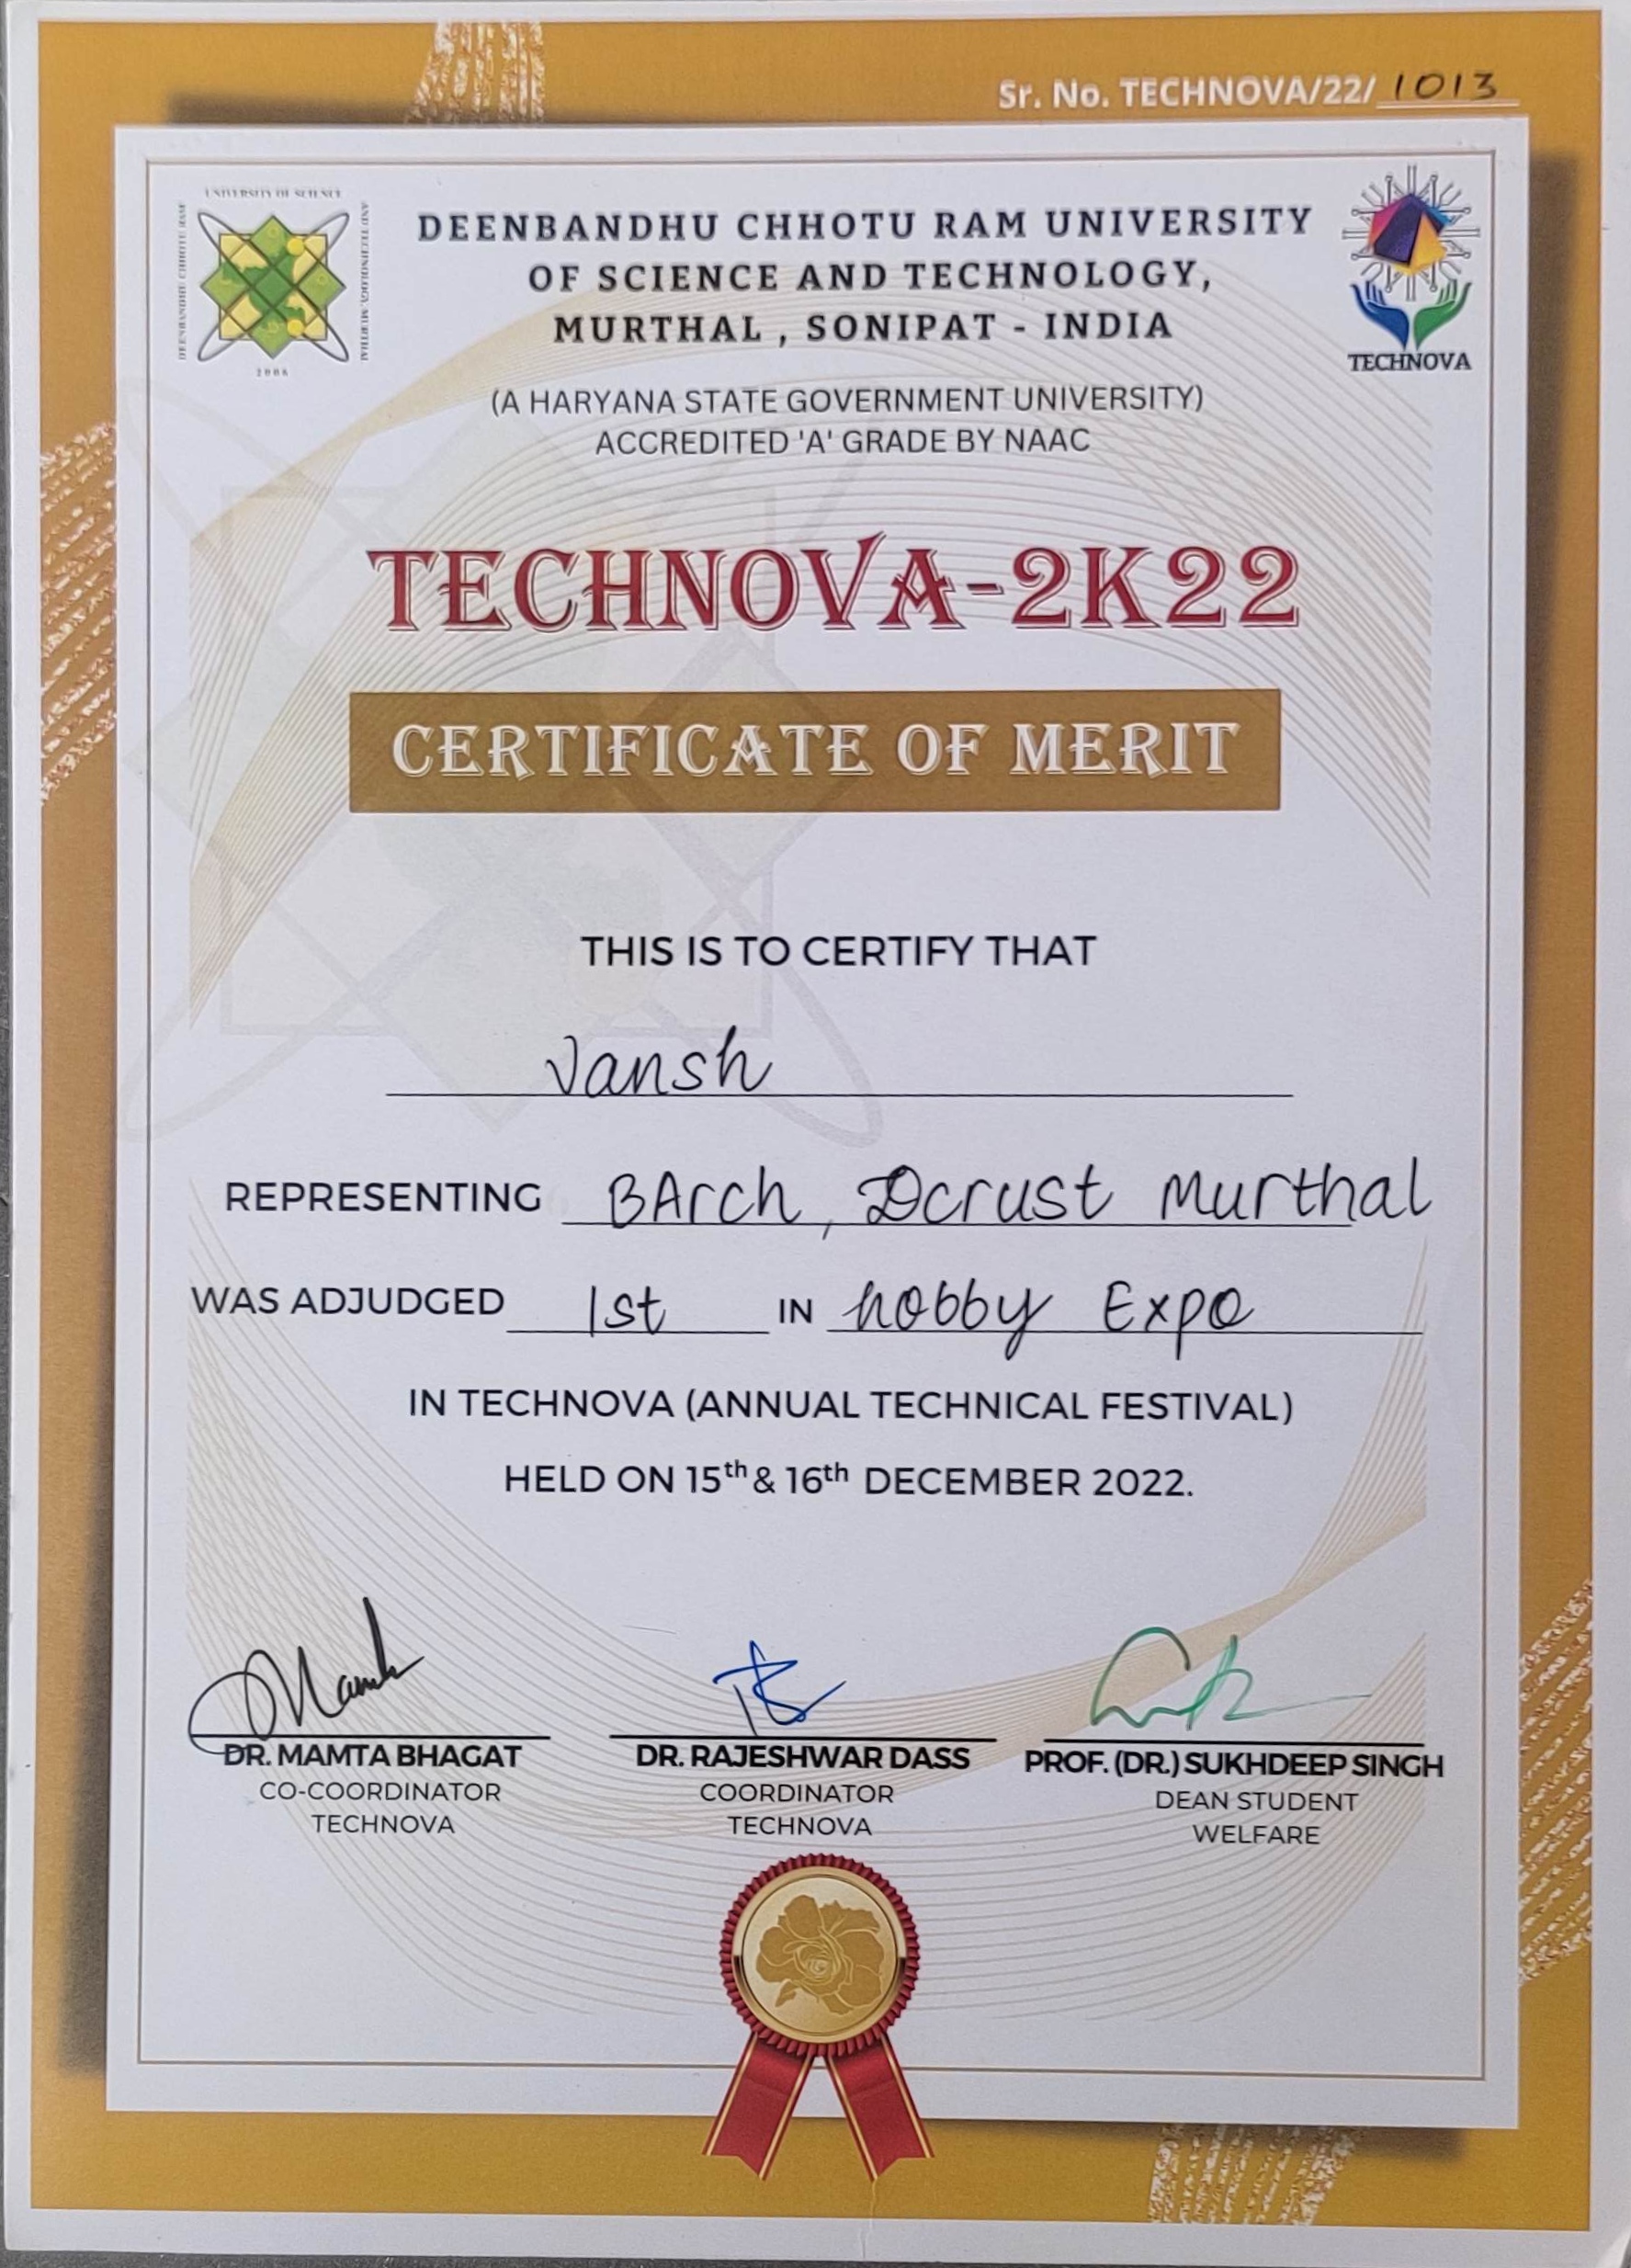 Sr. No. TECHNOVA/22/ 1013
UNIVERSITY OF SCIENCE
DEENBANDHU CHHOTU RAM
AND TECHNOLOGY, MURTHAL
2006
DEENBANDHU CHHOTU RAM UNIVERSITY
OF SCIENCE AND TECHNOLOGY,
MURTHAL , SONIPAT - INDIA
TECHNOVA
(A HARYANA STATE GOVERNMENT UNIVERSITY)
ACCREDITED 'A' GRADE BY NAAC
TECHNOVA-2K22
CERTIFICATE OF MERIT
THIS IS TO CERTIFY THAT
Vansh
REPRESENTING BArch, Dcrust Murthal
WAS ADJUDGED 1st IN hobby Expo
IN TECHNOVA (ANNUAL TECHNICAL FESTIVAL)
HELD ON 15th & 16th DECEMBER 2022.
DR. MAMTA BHAGAT
CO-COORDINATOR
TECHNOVA
DR. RAJESHWAR DASS
COORDINATOR
TECHNOVA
PROF. (DR.) SUKHDEEP SINGH
DEAN STUDENT
WELFARE